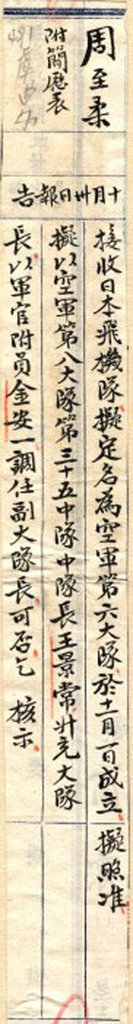 周至柔
附簡歷表
十月卅日報告
接收日本飛機隊擬定名為空軍第六大隊於十一月一日成立
擬以空軍第八大隊第三十五中隊中隊長王景常升充大隊
長以軍官附員金安一調任副大隊長可否乞 核示
擬照准